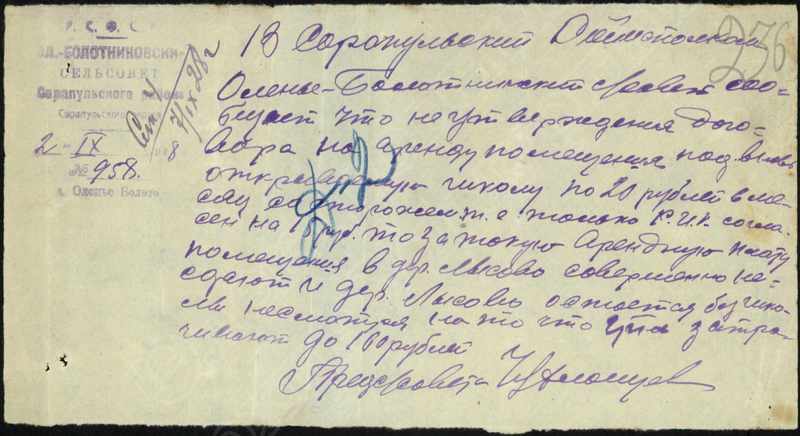 Р. С. Ф. С. Р.
ОЛ.-БОЛОТНИКОВСКИ
СЕЛЬСОВЕТ
Сарапульского района
Сарапульского
2-IX 8
№ 958.
с. Оленье Болото
7/IX 28 г
236
В Сарапульский Райисполком
Оленье-Болотнический с/совет соо-
бщает что не утверждения дого-
вора на аренду помещения под вновь
открываемую школу по 20 рублей в ме-
сяц со сторожем т. е. только Р.И.К. согла-
сен на руб. то за такую арендную плату
помещения в дер. Лысово совершенно не-
сдают и дер. Лысово остается без шко-
лы несмотря на то что затра-
чивают до 100 рублей
Предс/совета